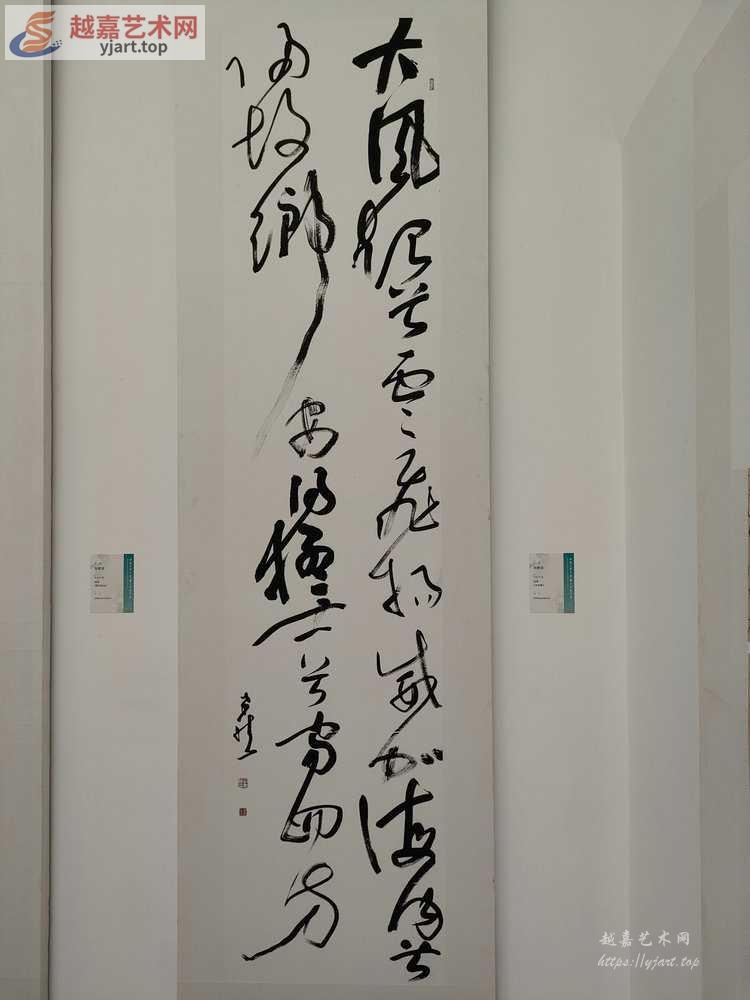 越嘉艺术网
yjart.top
大風起兮雲飛揚威加海内兮
歸故鄉安得猛士兮守四方
越嘉艺术网
https://yjart.top